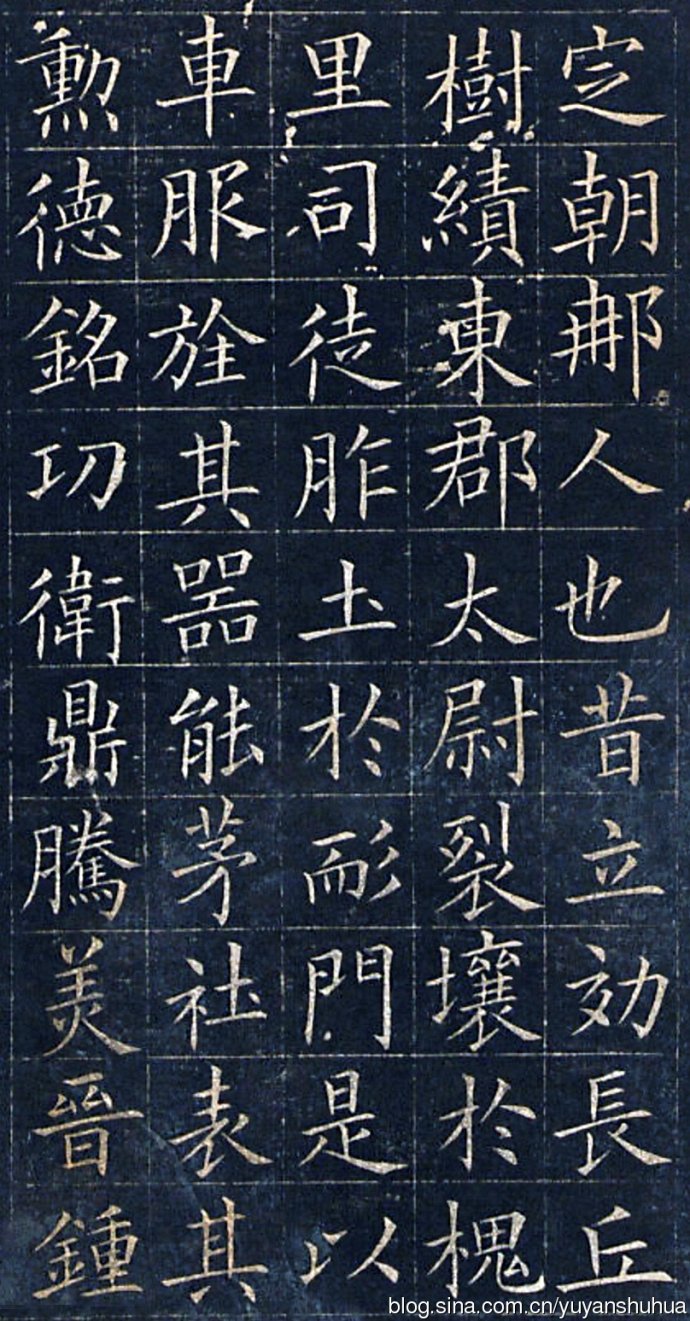 定朝𨙻人也昔立効長丘
樹績東郡太尉裂壤於槐
里司徒胙土於耏門是以
車服旌其器能茅社表其
勲德銘功衛鼎騰美晉鍾
blog.sina.com.cn/yuyanshuhua